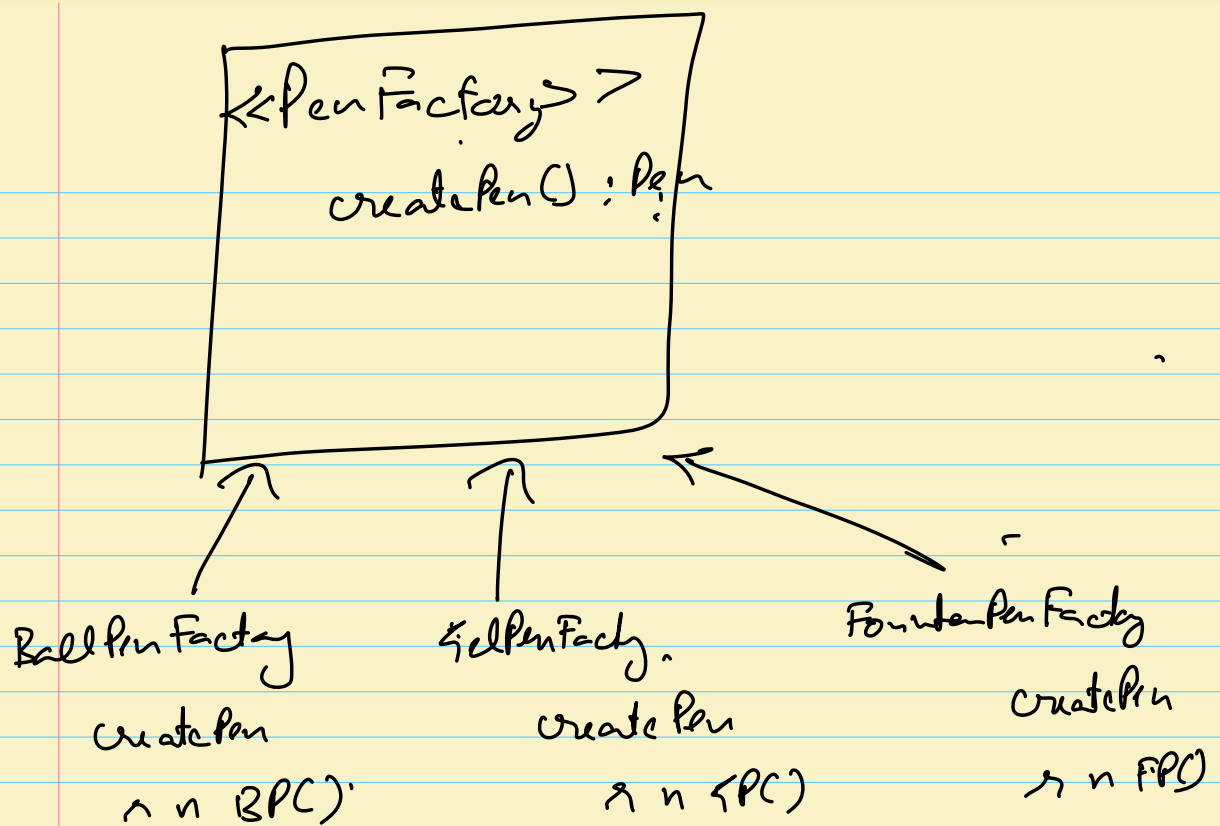 <<PenFactory>>
createPen() : Pen
BallPenFactory
createPen
r n BP()
GelPenFactory.
createPen
r n GP()
FountenPenFactory
createPen
r n FP()